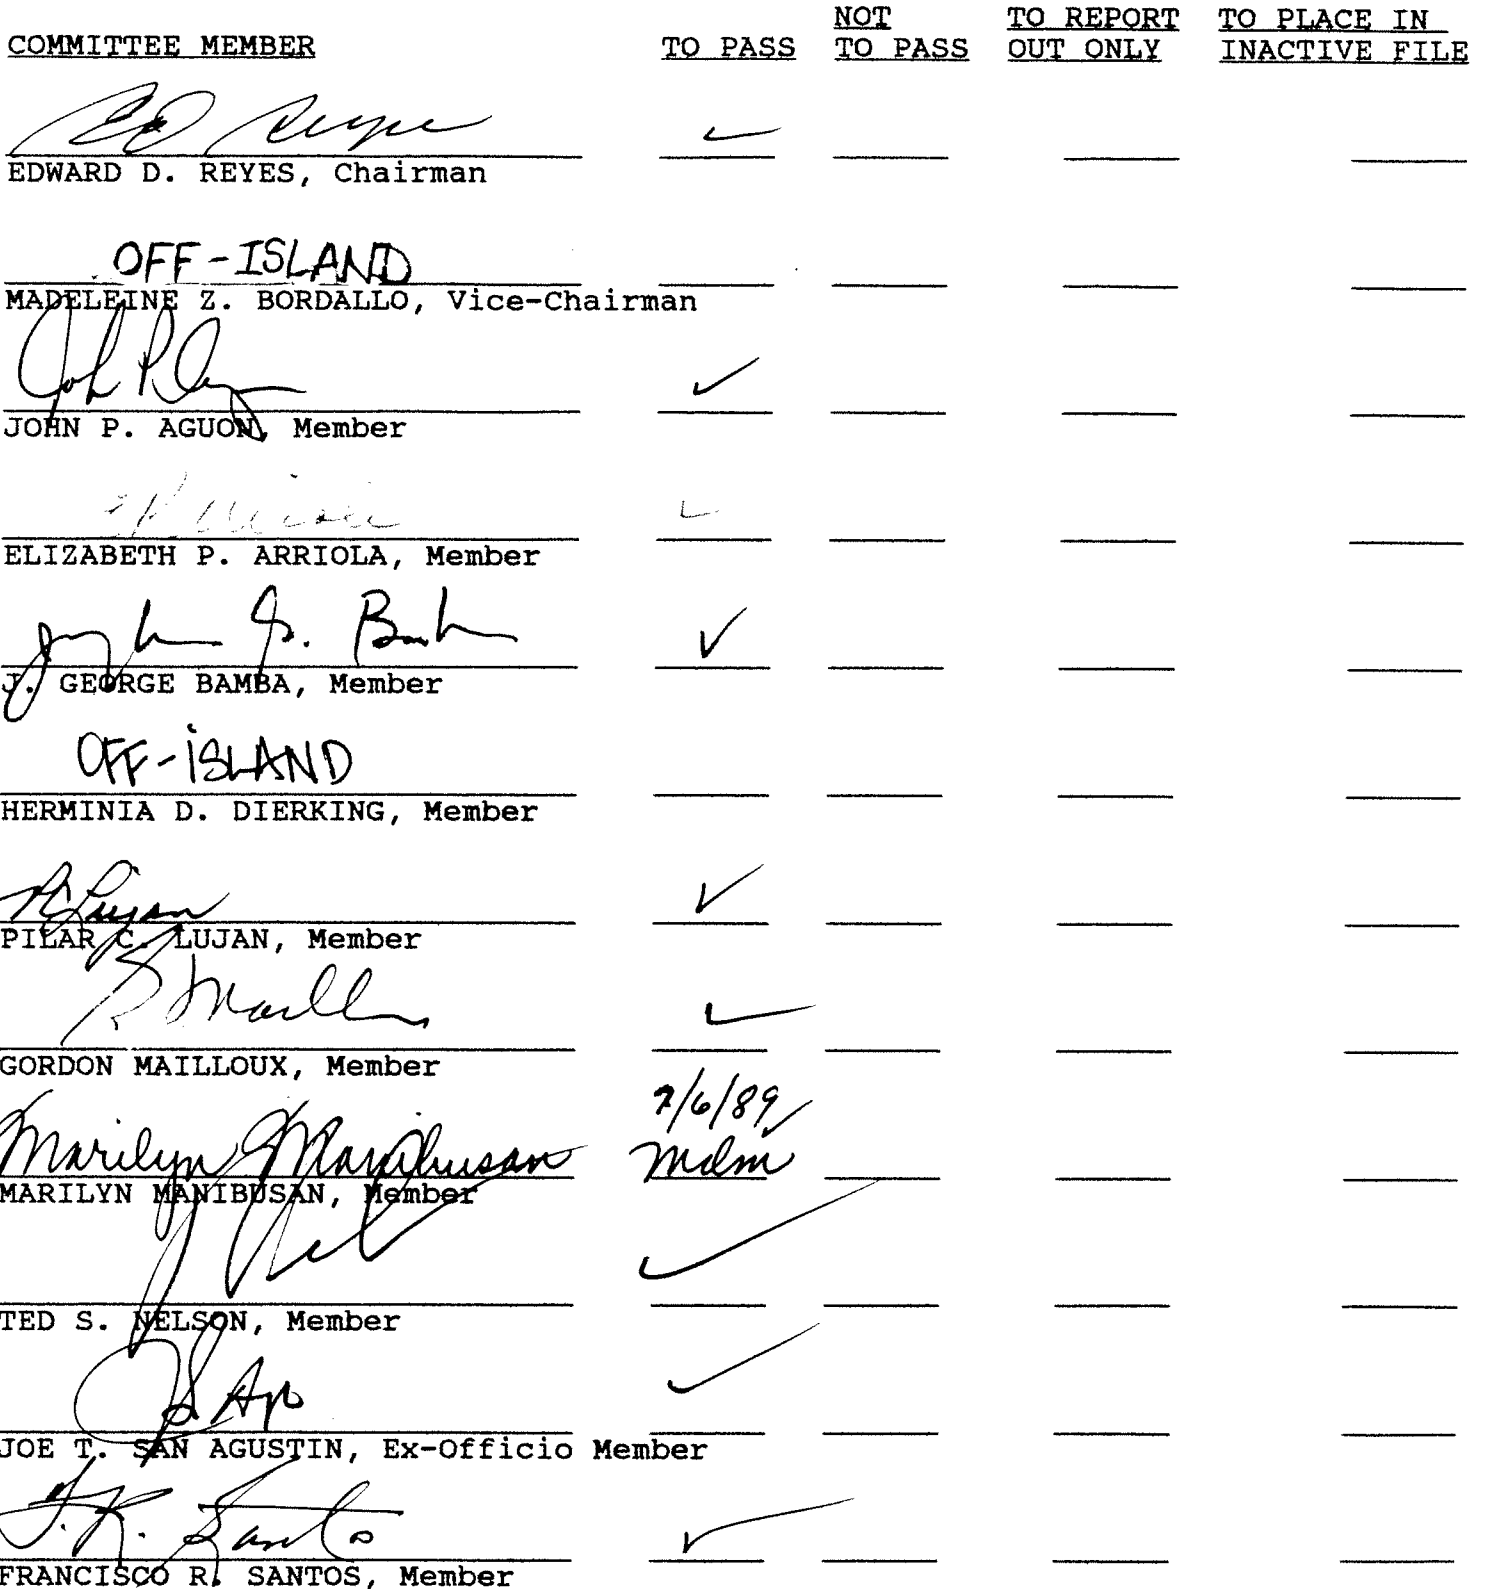 NOT TO REPORT TO PLACE IN
COMMITTEE MEMBER TO PASS TO PASS OUT ONLY INACTIVE FILE
EDWARD D. REYES, Chairman
OFF-ISLAND
MADELEINE Z. BORDALLO, Vice-Chairman
JOHN P. AGUON, Member
ELIZABETH P. ARRIOLA, Member
J. GEORGE BAMBA, Member
OFF-ISLAND
HERMINIA D. DIERKING, Member
PILAR C. LUJAN, Member
GORDON MAILLOUX, Member
7/6/89
Marilyn Manibusan mdm
MARILYN MANIBUSAN, Member
TED S. NELSON, Member
JOE T. SAN AGUSTIN, Ex-Officio Member
F. R. Santos
FRANCISCO R. SANTOS, Member